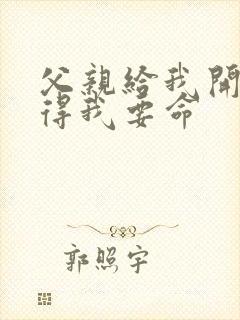 父親給我開
得我要命
郭照宇